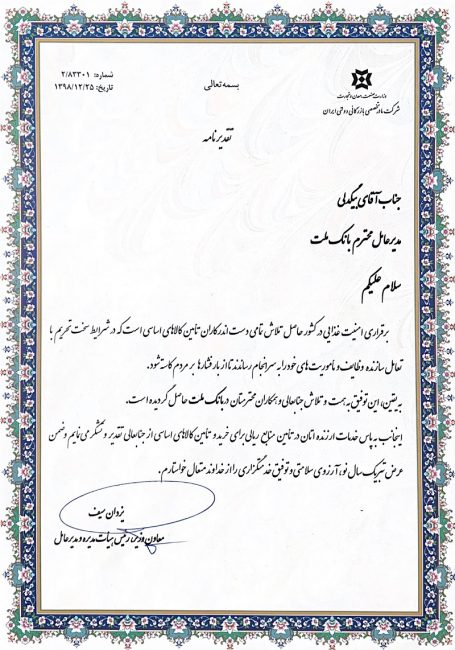 بسمه تعالی
وزارت صنعت، معدن و تجارت
شرکت مادر تخصصی بازرگانی دولتی ایران
شماره: ۲/۸۳۳۰۱
تاریخ: ۱۳۹۸/۱۲/۲۵
تقدیرنامه
جناب آقای بیگدلی
مدیرعامل محترم بانک ملت
سلام علیکم
برقراری امنیت غذایی در کشور حاصل تلاش تمامی دست اندرکاران تأمین کالاهای اساسی است که در شرایط سخت تحریم با
تعامل سازنده وظایف و مأموریت های خود را به سرانجام رساندند تا از بار فشارها بر مردم کاسته شود.
بر یقین، این توفیق به همت و تلاش جنابعالی و همکاران محترمتان در بانک ملت حاصل گردیده است.
اینجانب به پاس خدمات ارزنده اتان در تأمین منابع ریالی برای خرید و تأمین کالاهای اساسی از جنابعالی تقدیر و تشکر می نمایم و ضمن
عرض تبریک سال نو، آرزوی سلامتی و توفیق خدمتگزاری را از خداوند متعال خواستارم.
یزدان سیف
معاون وزیر، رئیس هیأت مدیره و مدیرعامل